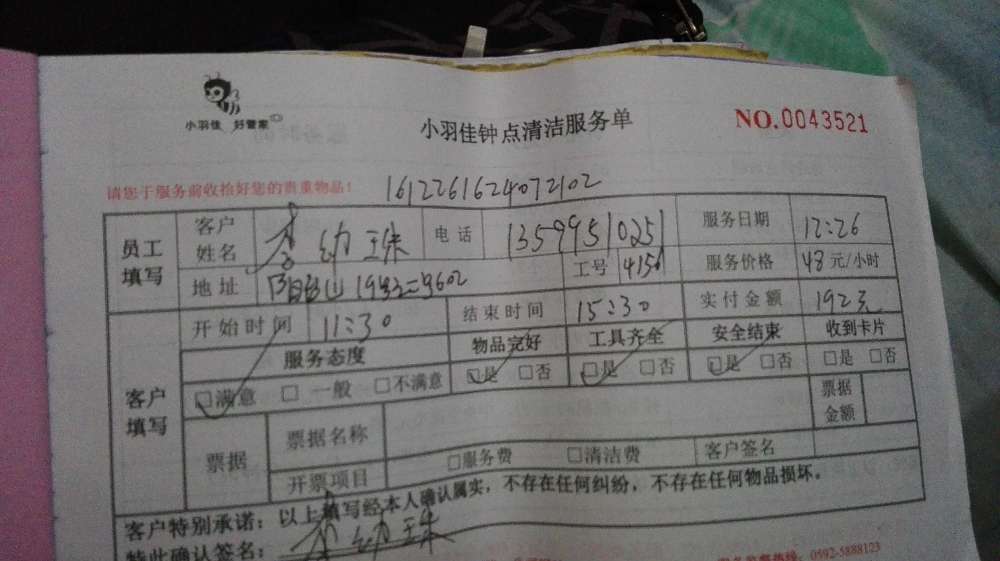 小羽佳 好管家
小羽佳钟点清洁服务单
NO.0043521
请您于服务前收拾好您的贵重物品！
1612261624072102
员工填写 客户姓名 李幼珠 电话 13599510251 服务日期 12:26
地址 阳台山19 工号 4156 服务价格 48元/小时
客户填写 开始时间 11:30 结束时间 15:30 实付金额 192元
服务态度 物品完好 工具齐全 安全结束 收到卡片
□满意 □一般 □不满意 □是 □否 □是 □否 □是 □否 □是 □否
票据 票据名称 票据金额
开票项目 □服务费 □清洁费 客户签名
客户特别承诺：以上填写经本人确认属实，不存在任何纠纷，不存在任何物品损坏。
特此确认签名：李幼珠
0592-5888123